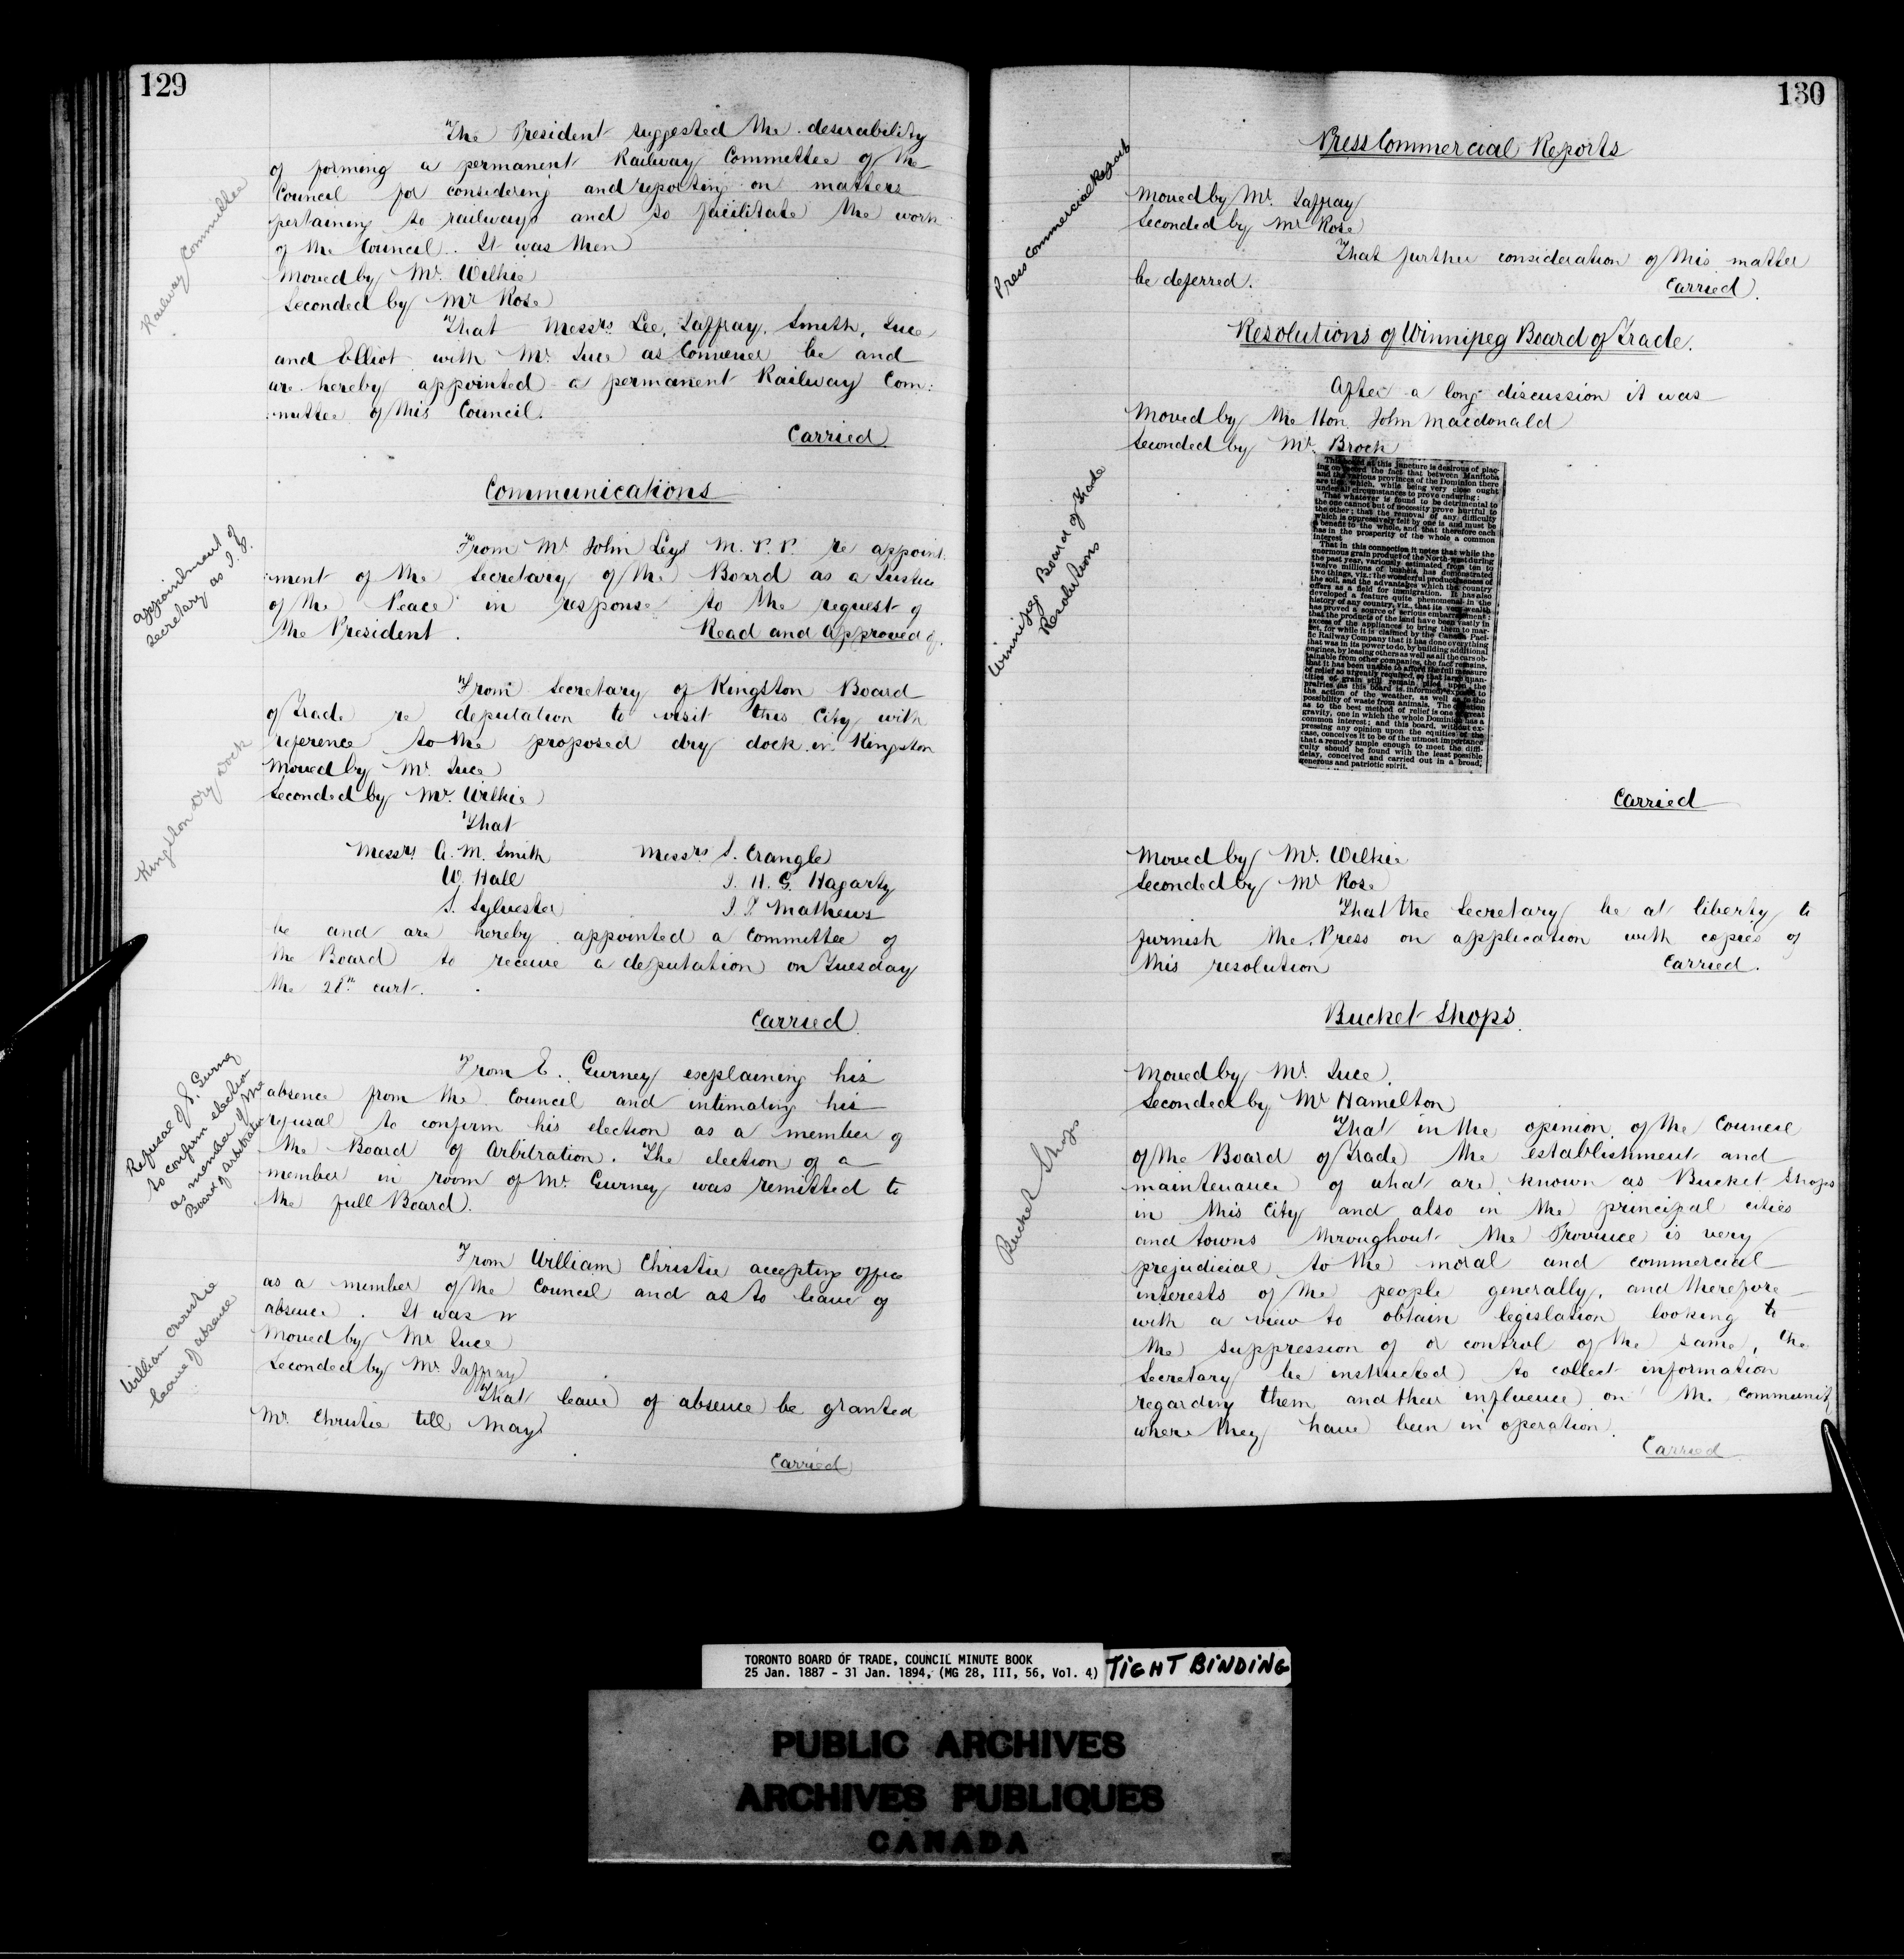 129
The President suggested the desirability
of forming a permanent Railway Committee of the
Council for considering and reporting on matters
pertaining to railways and so facilitate the work
of the Council. It was then
Moved by Mr. Wilkie
Seconded by Mr Rose
That Messrs. Lee, Jaffray, Smith, Ince
and Elliot with Mr. Ince as Convener be and
are hereby appointed a permanent Railway Com:
:mittee of this Council.
Carried
Railway Committee
Communications
From Mr John Leys M.P.P. re appoint:
:ment of the Secretary of the Board as a Justice
of the Peace in response to the request of
the President. Read and Approved of.
Appointment of
Secretary as J.P.
From Secretary of Kingston Board
of Trade re deputation to visit this City with
reference to the proposed dry dock in Kingston
Moved by Mr. Ince
Seconded by Mr. Wilkie
That
Messrs A. M. Smith Messrs S. Crangle
W. Hall J. H. G. Hagarty
S. Sylvester J. T. Mathews
be and are hereby appointed a Committee of
the Board to receive a deputation on Tuesday
the 28th curt.
Carried
Kingston Dry Dock
From E. Gurney explaining his
absence from the Council and intimating his
refusal to confirm his election as a member of
the Board of Arbitration. The election of a
member in room of Mr. Gurney was remitted to
the full Board.
Refusal of E. Gurney
to confirm election
as member of the
Board of Arbitration
From William Christie accepting office
as a member of the Council and as to leave of
absence. It was
Moved by Mr Ince
Seconded by Mr. Jaffray
That leave of absence be granted
Mr. Christie till May
Carried
William Christie
leave of absence
130
Press Commercial Reports
Moved by Mr. Jaffray
Seconded by Mr Rose
That further consideration of this matter
be deferred. Carried.
Press Commercial Reports
Resolutions of Winnipeg Board of Trade.
After a long discussion it was
Moved by the Hon. John Macdonald
Seconded by Mr. Brock
This board at this juncture is desirous of plac-
ing on record the fact that between Manitoba
and the various provinces of the Dominion there
are ties which, while being very close ought
under all circumstances to prove enduring:
That whatever is found to be detrimental to
the one cannot but of necessity prove hurtful to
the other; that the removal of any difficulty
which is oppressively felt by one is and must be
a benefit to the whole, and that therefore each
has in the prosperity of the whole a common
interest.
That in this connection it notes that while the
enormous grain product of the North-west during
the past year, variously estimated from ten to
twelve millions of bushels, has demonstrated
two things, viz.: the wonderful productiveness of
the soil, and the advantages which the country
offers as a field for immigration. It has also
developed a feature quite phenomenal in the
history of any country, viz., that its very wealth
has proved a source of serious embarrassment;
that the products of the land have been vastly in
excess of the appliances to bring them to mar-
ket, for while it is claimed by the Canada Pacif-
ic Railway Company that it has done everything
that was in its power to do, by building additional
engines, by leasing others as well as all the cars ob-
tainable from other companies, the fact remains
that it has been unable to afford the full measure
of relief so urgently required, so that large quan-
tities of grain still remain piled upon the
prairies (as this board is informed) exposed to
the action of the weather, as well as to the
possibility of waste from animals. The question
as to the best method of relief is one of great
gravity, one in which the whole Dominion has a
common interest; and this board, without ex-
pressing any opinion upon the equities of the
case, conceives it to be of the utmost importance
that a remedy ample enough to meet the diffi-
culty should be found with the least possible
delay, conceived and carried out in a broad,
generous and patriotic spirit.
Carried
Winnipeg Board of Trade
Resolutions
Moved by Mr. Wilkie
Seconded by Mr Rose
That the Secretary be at liberty to
furnish the Press on application with copies of
this resolution Carried.
Bucket Shops
Moved by Mr. Ince.
Seconded by Mr Hamilton
That in the opinion of the Council
of the Board of Trade the establishment and
maintenance of what are known as Bucket Shops
in this City and also in the principal cities
and towns throughout the Province is very
prejudicial to the moral and commercial
interests of the people generally, and therefore
with a view to obtain legislation looking to
the suppression of or control of the same, the
Secretary be instructed to collect information
regarding them and their influence on the community
where they have been in operation.
Carried
Bucket Shops
TORONTO BOARD OF TRADE, COUNCIL MINUTE BOOK
25 Jan. 1887 - 31 Jan. 1894, (MG 28, III, 56, Vol. 4)
TIGHT BINDING
PUBLIC ARCHIVES
ARCHIVES PUBLIQUES
CANADA